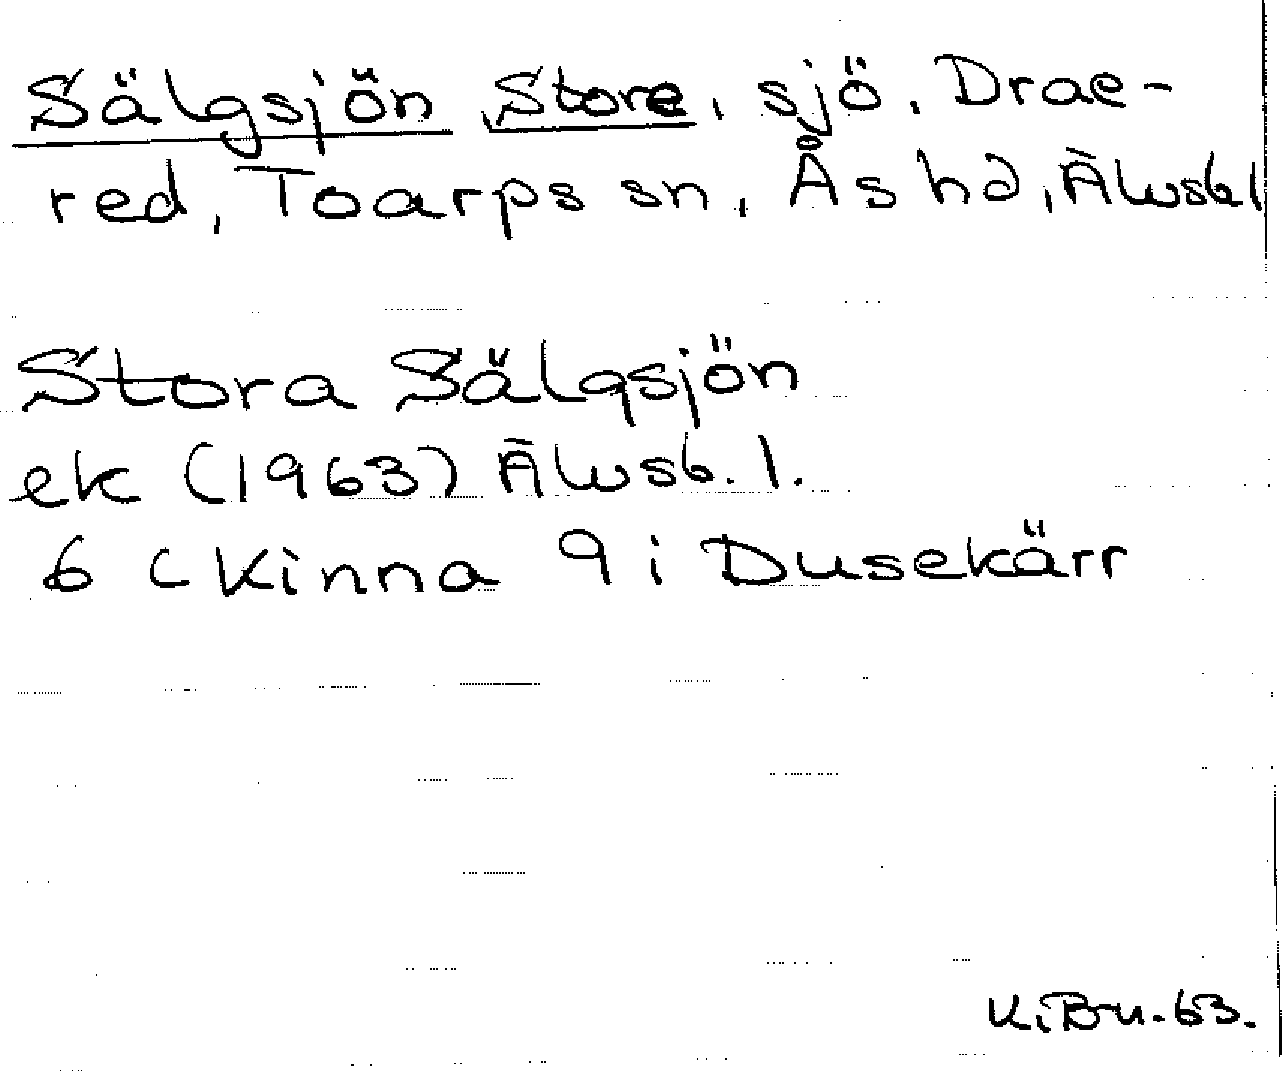 Sälgsjön, Store, sjö, Drae-
red, Toarps sn, Ås hd, Älvsb. l
Stora Sälgsjön
ek (1963) Älvsb. l.
6 C Kinna 9 i Dusekärr
K.Bn.-63.